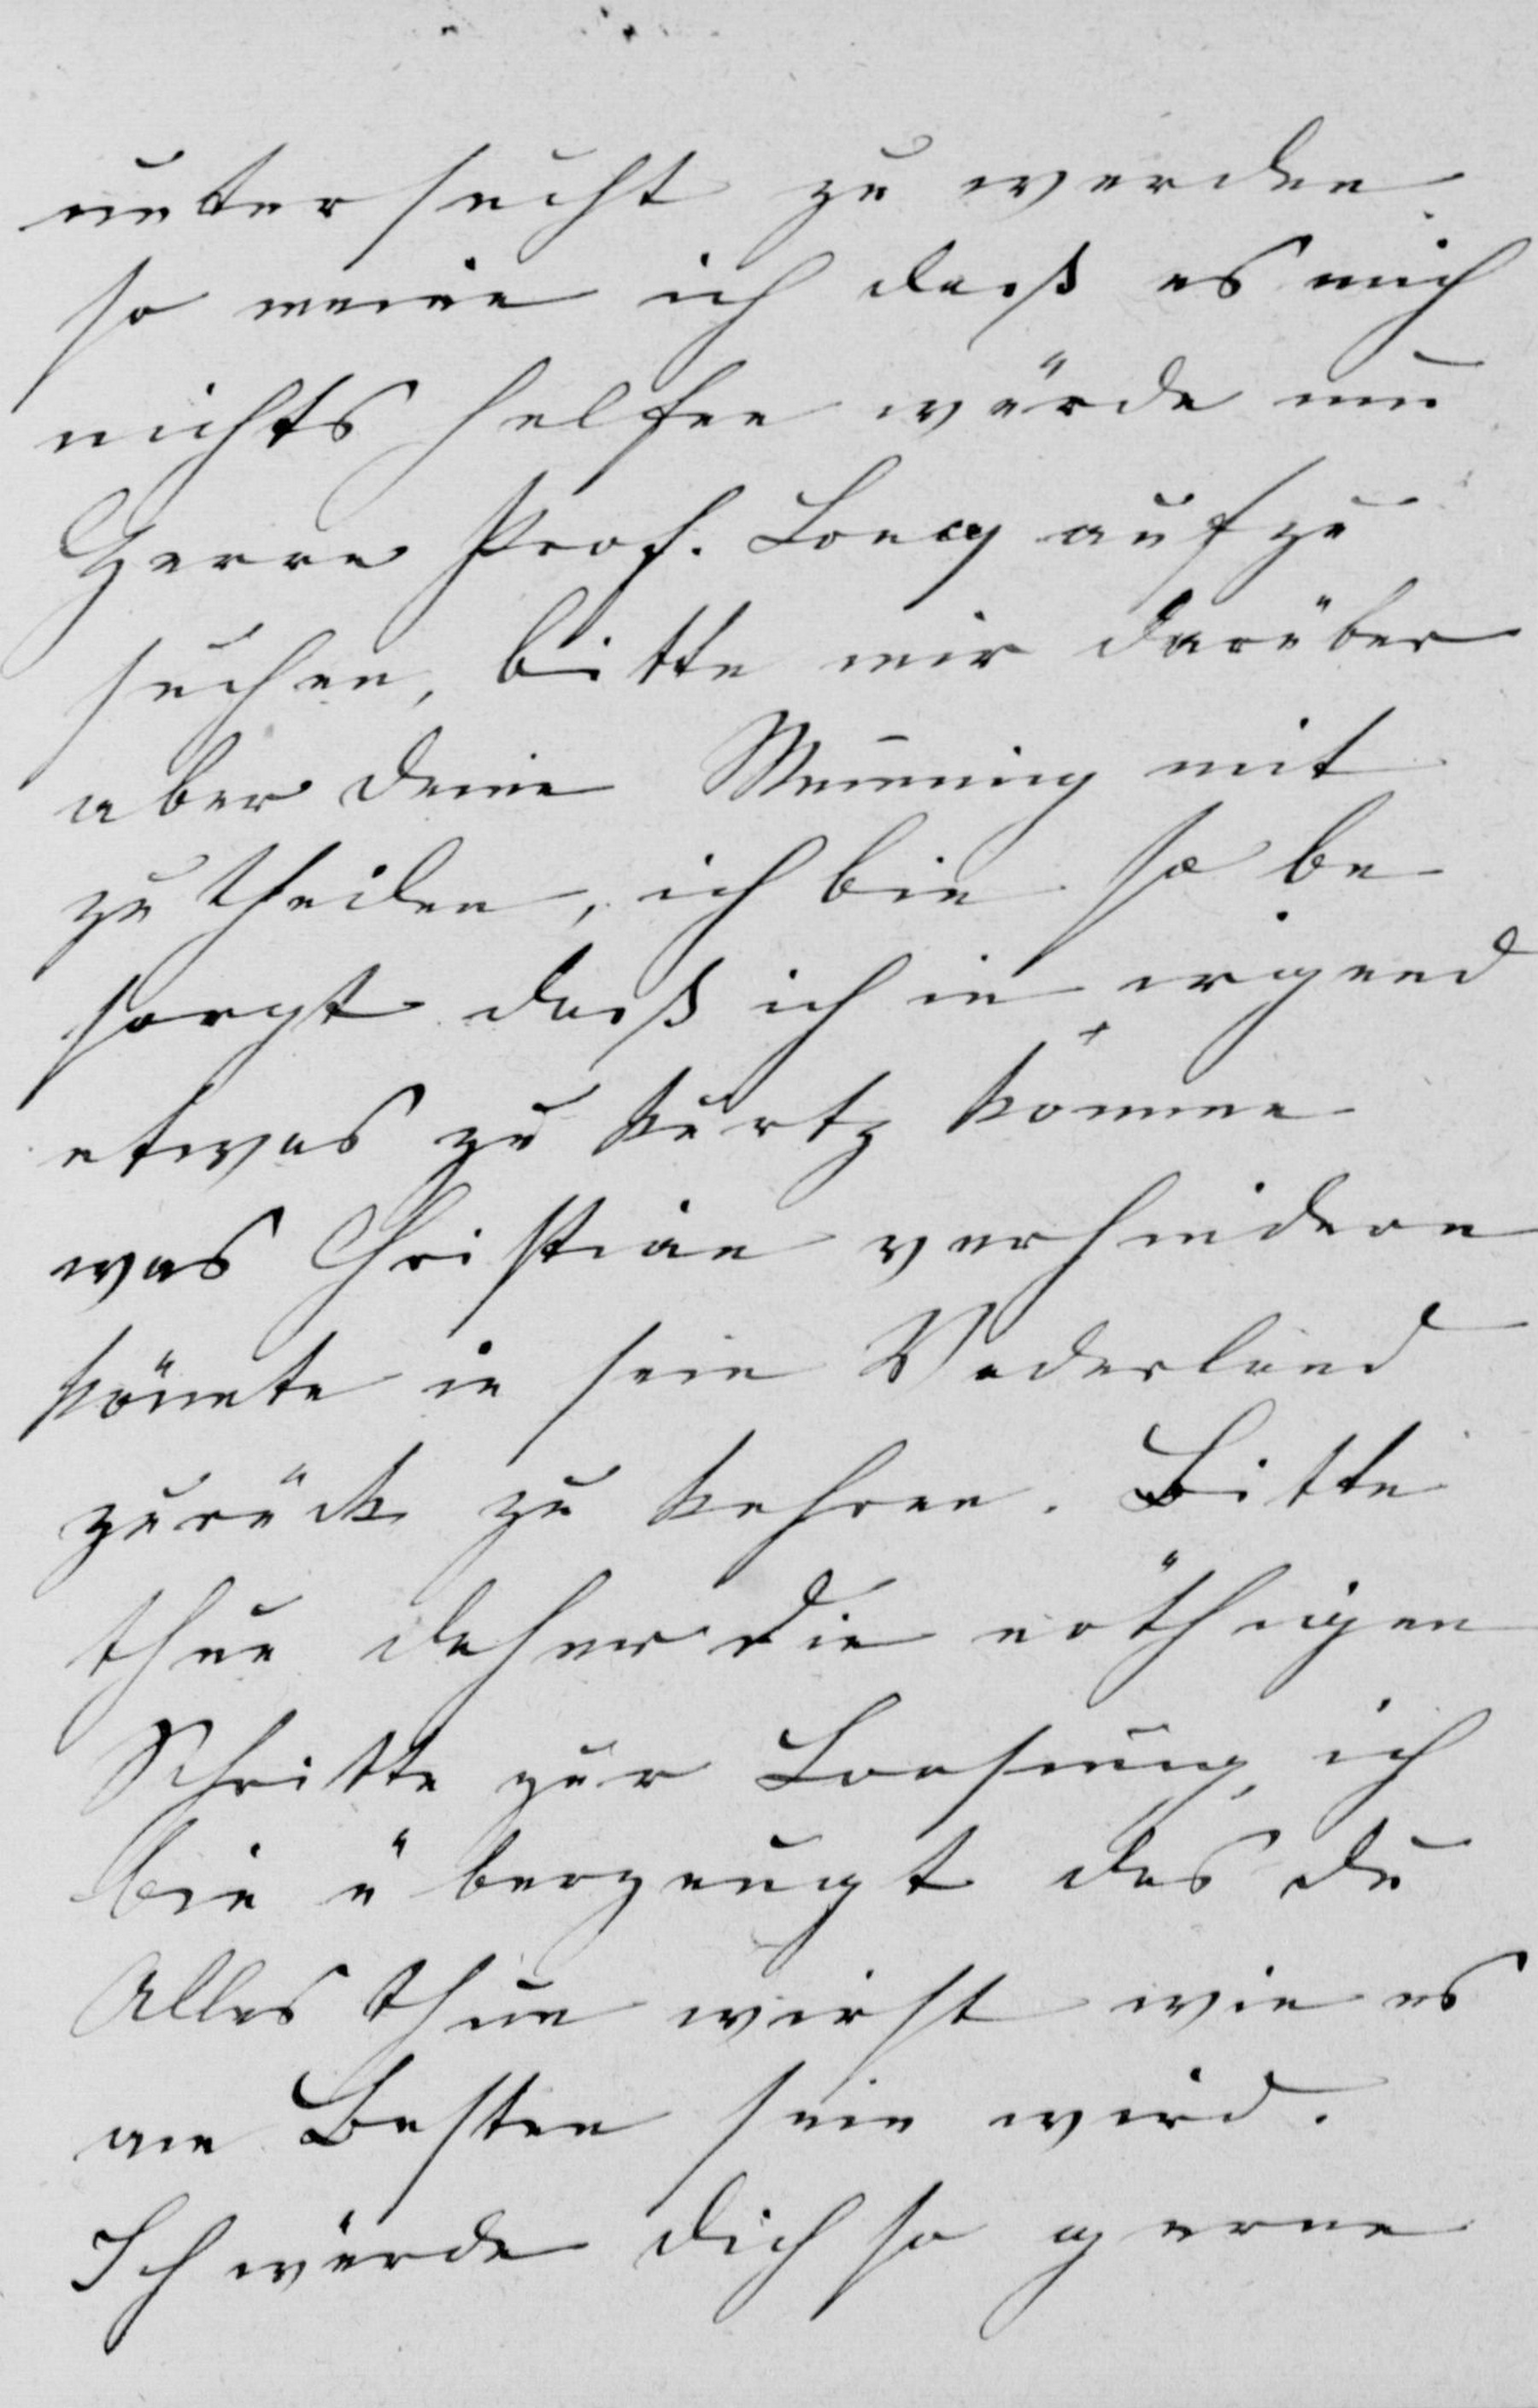 untersucht zu werden
so meine ich daß es mich
nichts helfen würde nun
Herrn Prof. aufzu
suchen, bitte mir darüber
aber deine Meinung mit
zu theilen, ich bin so be
sorgt daß ich in irgend
etwas zu kurtz komme
was Christian verhindern
könnte in sein Vaderland
zurück zu kehren. Bitte
thue daher die nöthigen
Schritte zur Loosung, ich
bin überzeugt das du
Alles thun wirst wie es
am Besten sein wird.
Ich würde dich so gerne